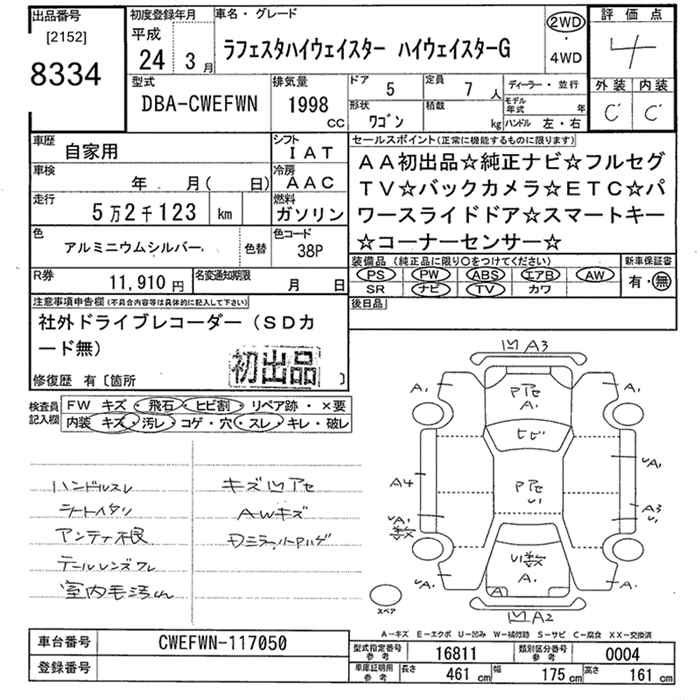 出品番号
[2152]
8334
初度登録年月
平成
24 3月
車名・グレード
ラフェスタハイウェイスター ハイウェイスターG
2WD
・
4WD
評価点
4
外装 内装
C C
型式
DBA-CWEFWN
排気量
1998
CC
ドア 5
定員 7 人
形状 ワゴン
積載 kg
ディーラー・並行
モデル年式 年
ハンドル 左・右
車歴 自家用
シフト IAT
車検 年 月( 日)
冷房 AAC
走行 5万2千123 km
燃料 ガソリン
色 アルミニウムシルバー 色替
色コード 38P
R券 11,910円
名変通知期限 月 日
セールスポイント(正常に機能するものに限ります)
AA初出品☆純正ナビ☆フルセグ
TV☆バックカメラ☆ETC☆パ
ワースライドドア☆スマートキー
☆コーナーセンサー☆
装備品(純正品に限り○をつけてください)
PS PW ABS エアB AW
SR ナビ TV カワ
新車保証書
有・無
後日品
注意事項申告欄(不具合内容等は具体的に記入して下さい)
社外ドライブレコーダー(SDカ
ード無)
初出品
修復歴 有〔箇所 〕
検査員記入欄
FW キズ・飛石・ヒビ割・リペア跡・×要
内装 キズ・汚レ・コゲ・穴・スレ・キレ・破レ
ハンドルスレ
シートヘタリ
アンテナ根
テールレンズワレ
室内毛汚れ
キズ凹アセ
AWキズ
凹A3
A1 A1
アアセ
A1
ヒビ
アアセ
U1
A4
UA1
A3
U1
UA1
A1
UA1 UA1
凹A2
スペア
A-キズ E-エクボ U-凹み W-補修跡 S-サビ C-腐食 XX-交換済
車台番号 CWEFWN-117050
登録番号
型式指定番号参考 16811
類別区分番号参考 0004
車庫証明用参考 長さ 461 cm 幅 175 cm 高さ 161 cm